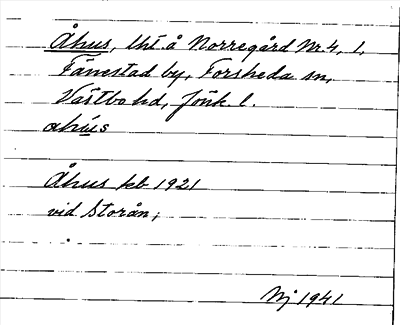 Åhus, lht. å Norregård Nr. 4, 1,
Fänestad by, Forsheda sn,
Västbo hd, Jönk. l.
ahús
Åhus kb 1921
vid Storån;
Nj 1941